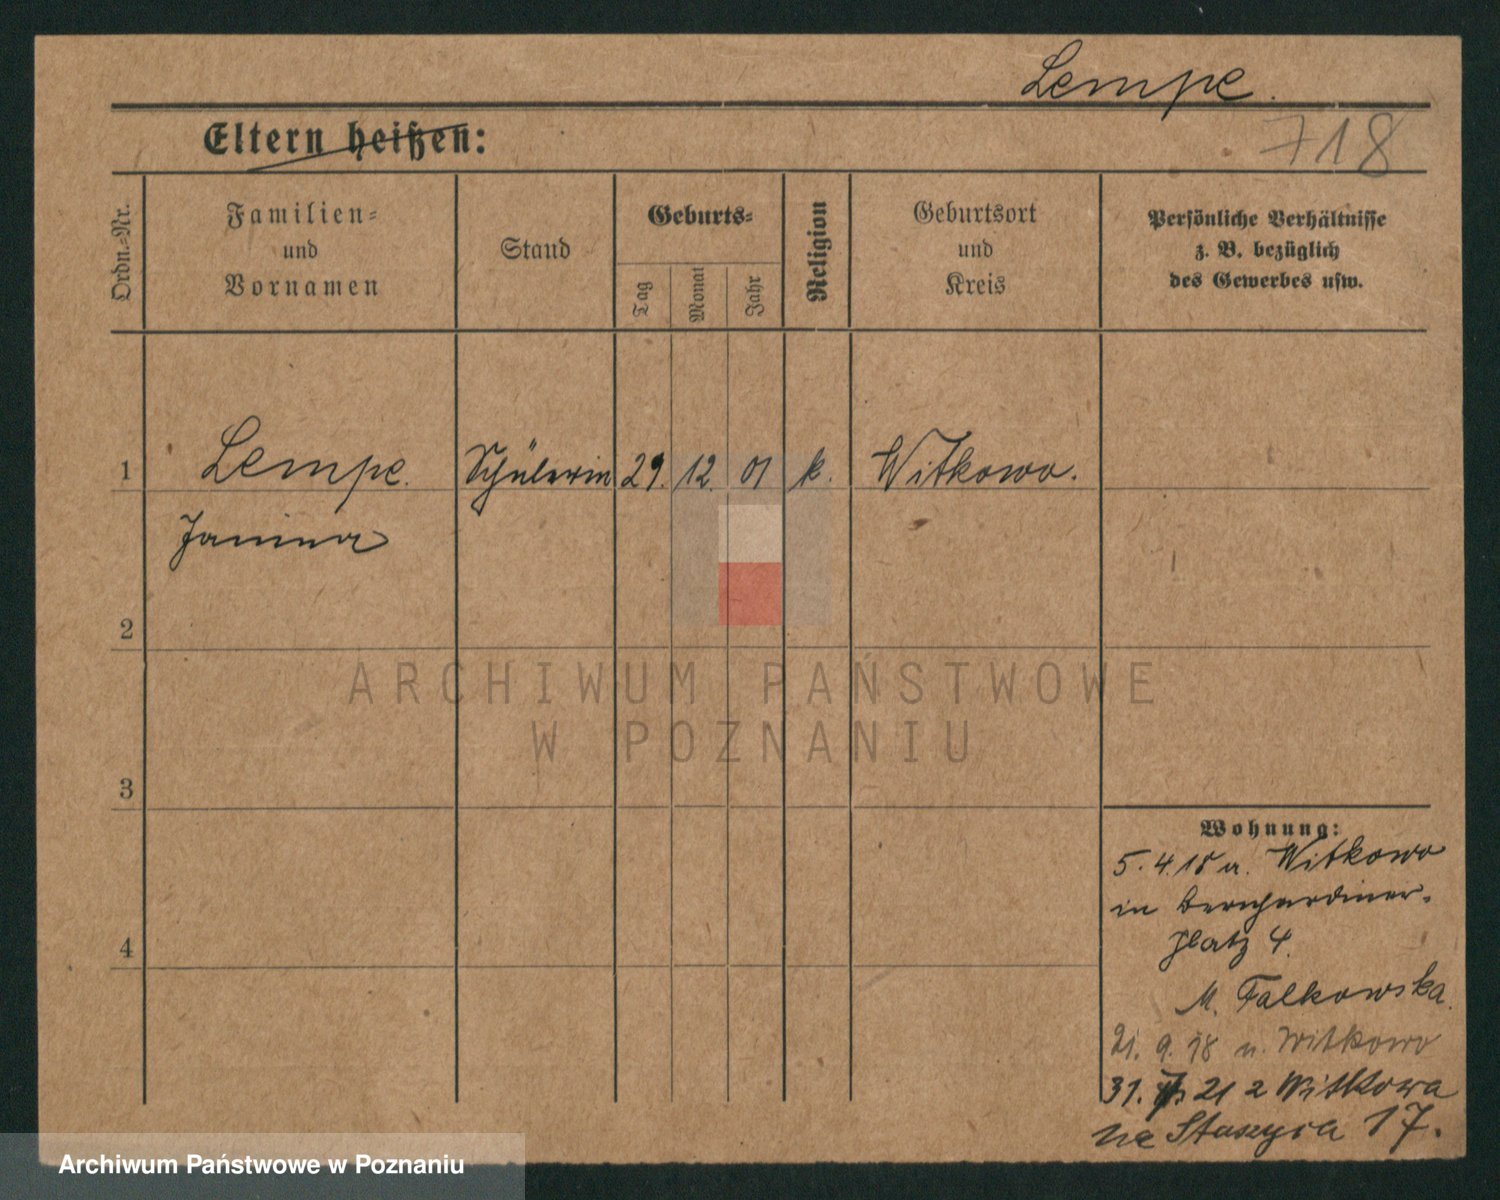 Lempe.
718
Eltern heißen:
Ordn.-Nr.
Familien-
und
Vornamen
Stand
Geburts-
Tag
Monat
Jahr
Religion
Geburtsort
und
Kreis
Persönliche Verhältnisse
z. B. bezüglich
des Gewerbes usw.
1 Lempe. Schülerin 29. 12. 01 k. Witkowo.
Janina
2
ARCHIWUM PAŃSTWOWE
W POZNANIU
3
Wohnung:
5.4.15 a. Witkowo
in Bernhardiner-
platz 4.
4
M. Falkowska.
21. 9. 18 n. Witkowo
31. 21 z Witkowa
na Staszyca 17.
Archiwum Państwowe w Poznaniu